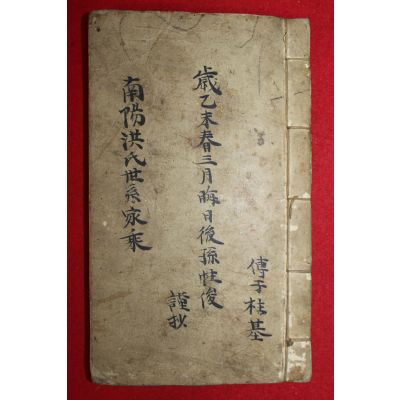 傳子桂基
歲乙未春三月晦日後孫性俊
謹抄
南陽洪氏世系家乘